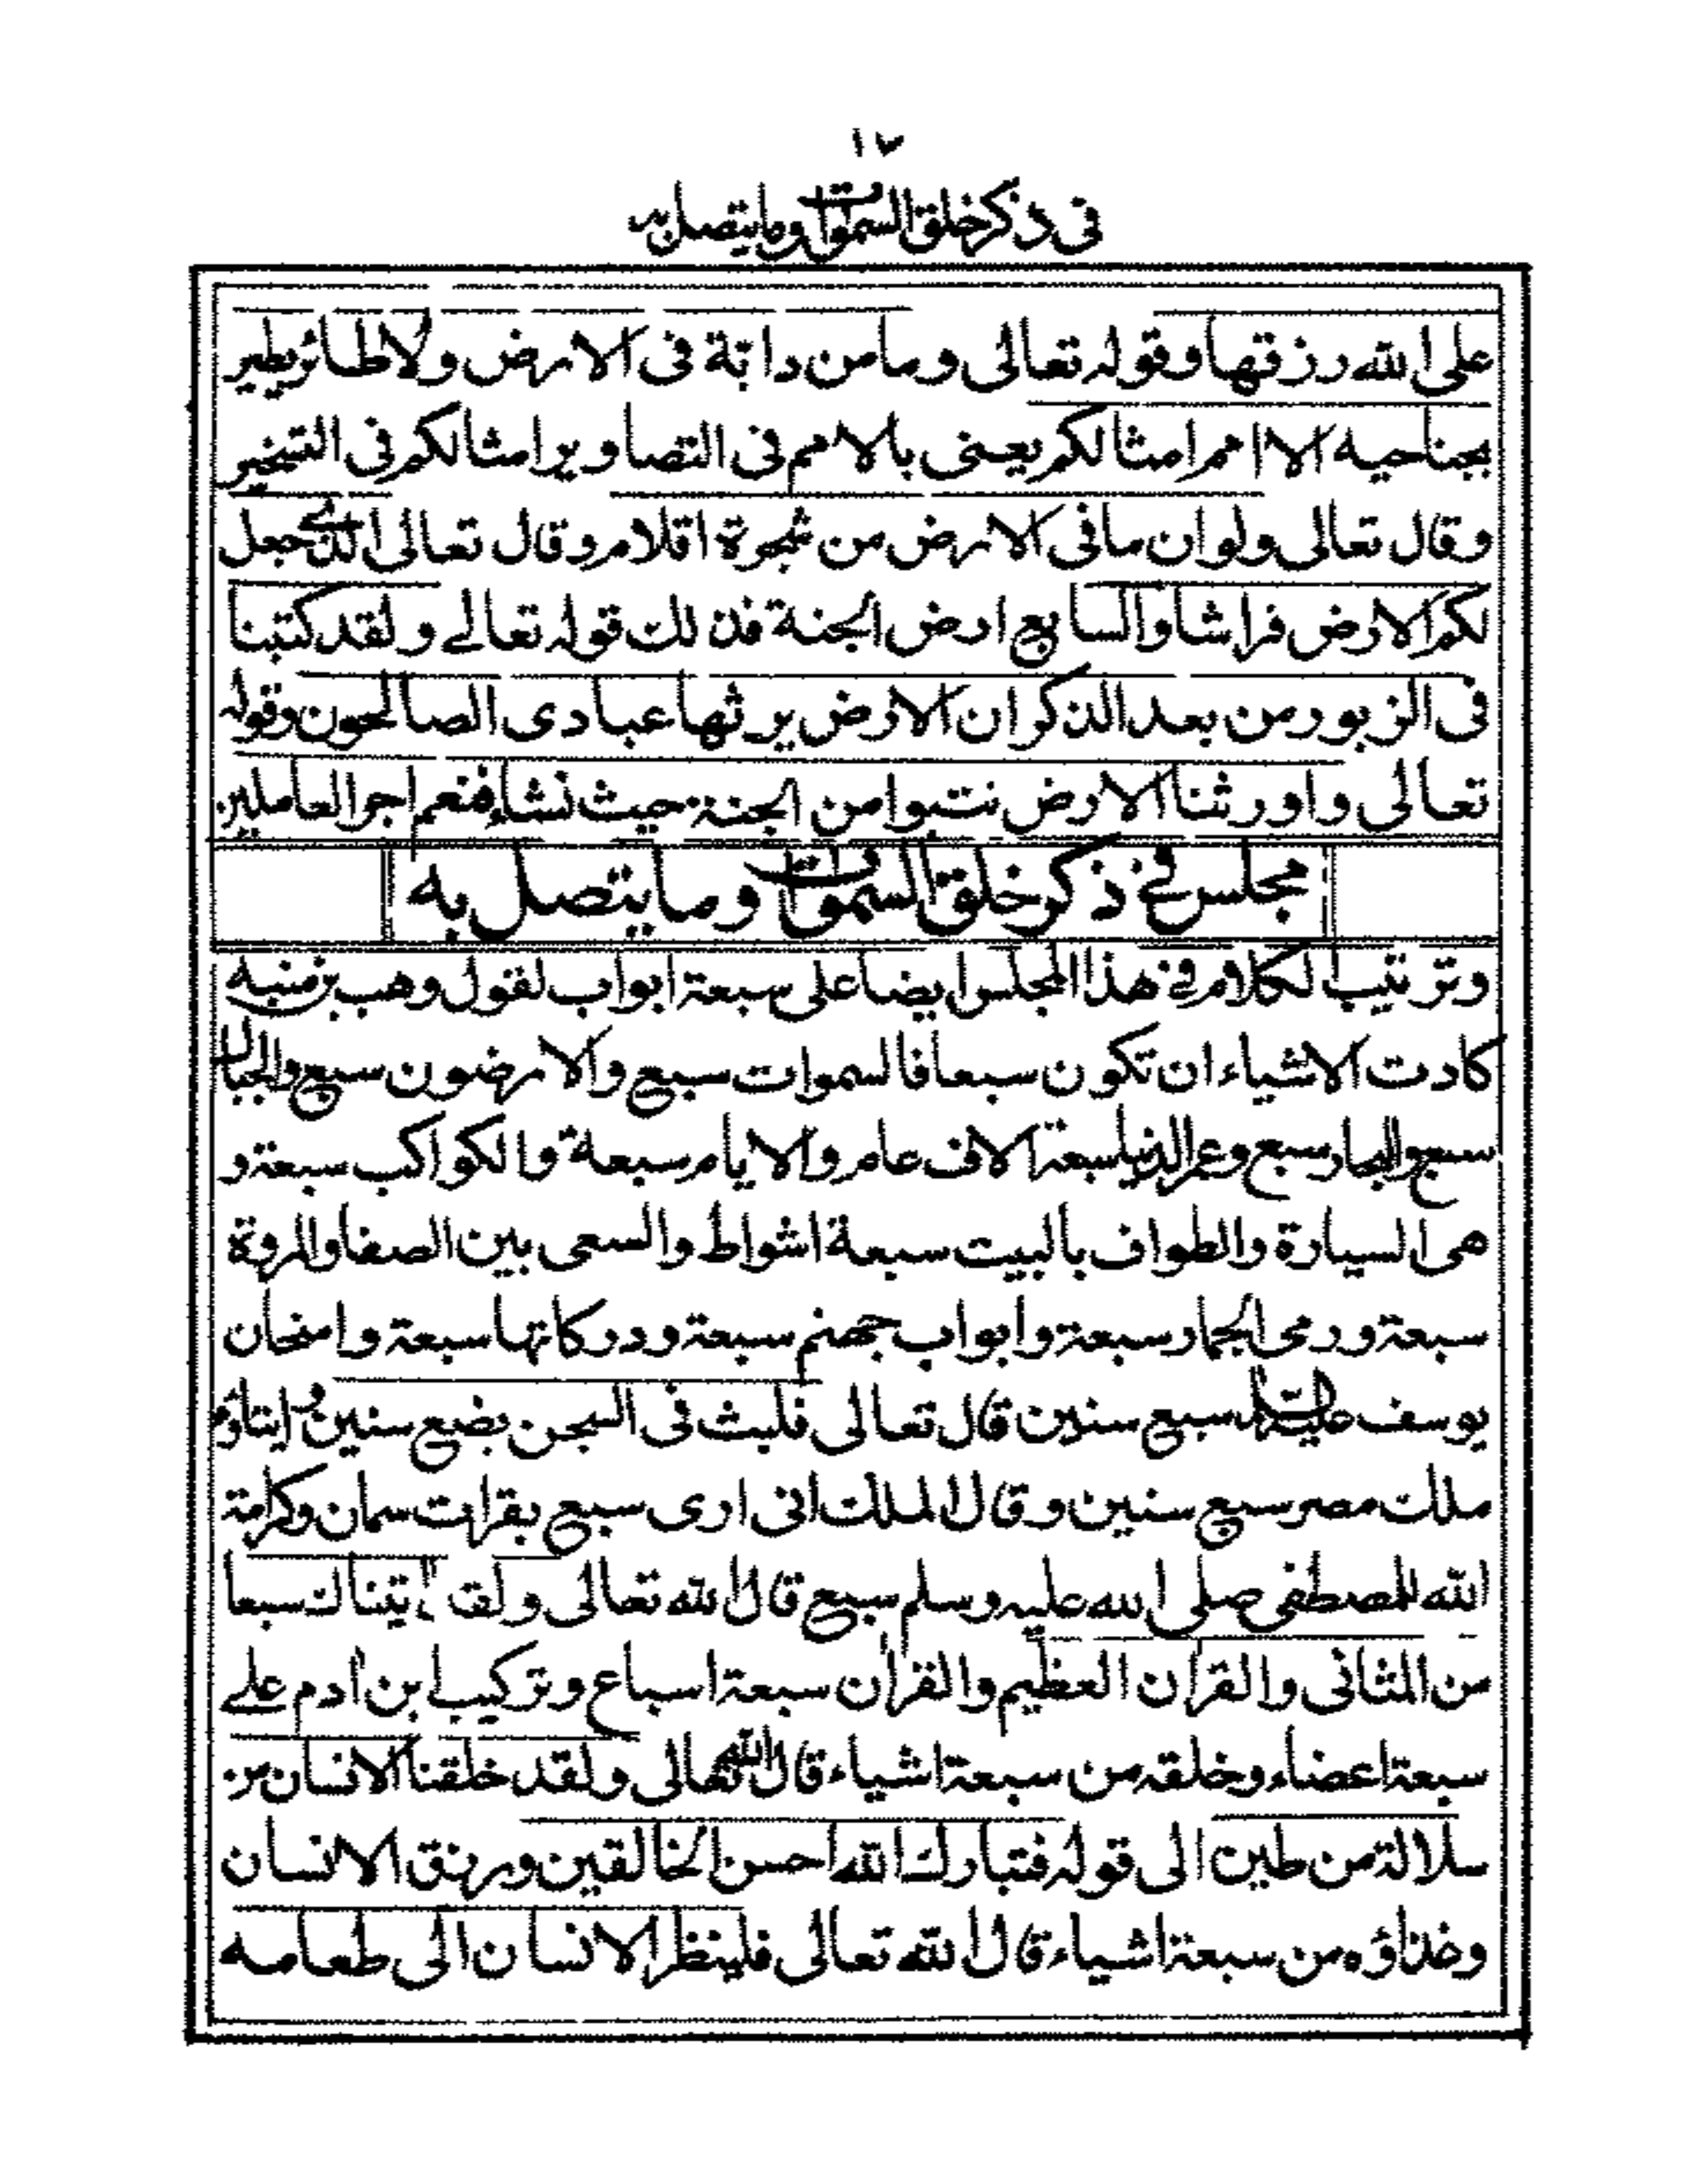 ١٧
فى ذكر خلق السموات وما يتصل به
على الله رزقها وقوله تعالى وما من دابة فى الارض ولا طائر يطير
بجناحيه الا امم امثالكم يعنى بالامم فى التصاوير امثالكم فى التسخير
وقال تعالى ولو ان ما فى الارض من شجرة اقلام وقال تعالى الذى جعل
لكم الارض فراشا والسابع ارض الجنة فذلك قوله تعالے ولقد كتبنا
فى الزبور من بعد الذكر ان الارض يرثها عبادى الصالحون وقوله
تعالى واورثنا الارض نتبوا من الجنة حيث نشاء فنعم اجر العاملين
مجلس فے ذكر خلق السموات وما يتصل به
وترتيب الكلام فے هذا المجلس ايضا على سبعة ابواب لقول وهب بن منبه
كادت الاشياء ان تكون سبعا فالسموات سبع والارضون سبع والجبال
سبع والبحار سبع وعمر الدنيا سبعة الاف عام والايام سبعة والكواكب سبعة و
هى السيارة والطواف بالبيت سبعة اشواط والسعى بين الصفا والمروة
سبعة ورمى الجمار سبعة وابواب جهنم سبعة ودركاتها سبعة وامتحان
يوسف عليه السلام سبع سنين قال تعالى فلبث فى السجن بضع سنين وايتاؤه
ملك مصر سبع سنين وقال الملك انى ارى سبع بقرات سمان وكرامة
الله للمصطفى صلى الله عليه وسلم سبع قال الله تعالى ولقد اتيناك سبعا
من المثانى والقرآن العظيم والقرآن سبعة اسباع وتركيب ابن آدم علے
سبعة اعضاء وخلقه من سبعة اشياء قال الله تعالى ولقد خلقنا الانسان من
سلالة من طين الى قوله فتبارك الله احسن الخالقين ورزق الانسان
وغذاؤه من سبعة اشياء قال الله تعالى فلينظر الانسان الى طعامه